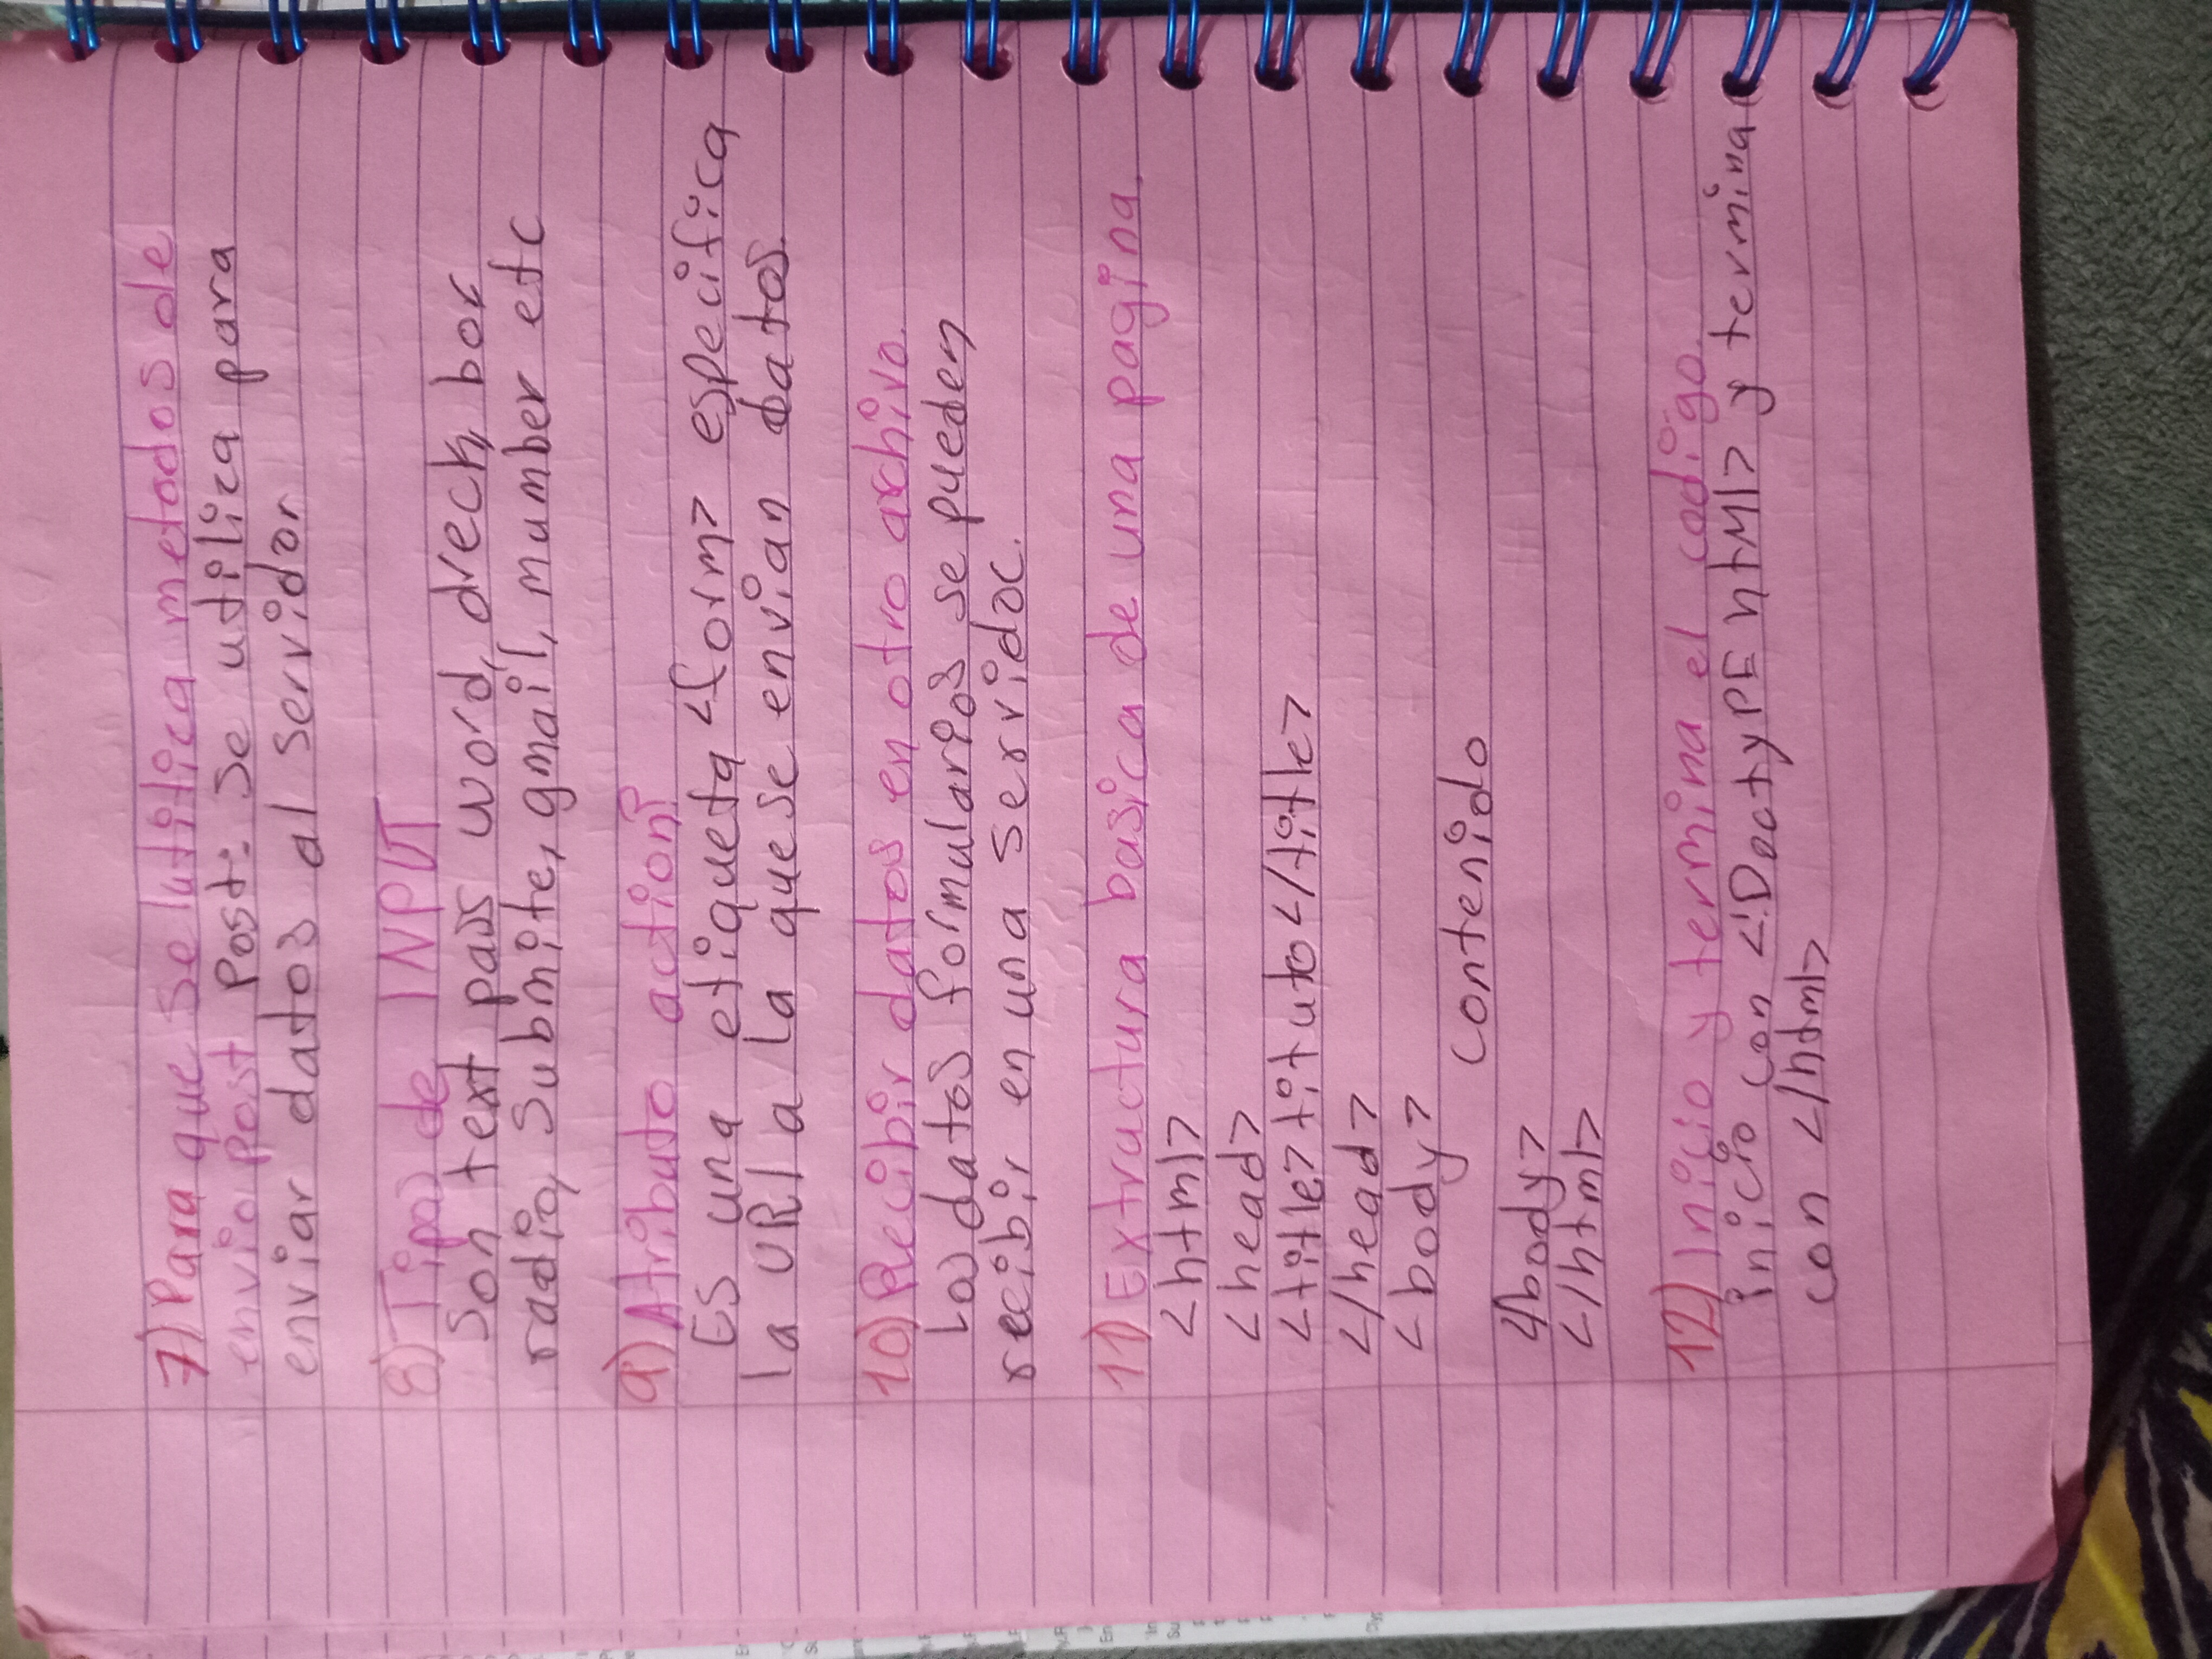 7) Para que se lutilica metodos de
envio Post Post: Se utilica para
enviar datos al servidor
8) Tipos de INPUT
Son text pass word, dreck, box
radio, Submite, gmail, number etc
9) Atributo action?
Es una etiqueta <form> especifica
la URl a la que se envian datos.
10) Recibir datos en otro archivo.
Los datos formularios se pueden
recibir en una servidor.
11) Extructura basica de una pagina.
<html>
<head>
<title> tituto </title>
</head>
<body>
contenido
</body>
</html>
12) Inicio y termina el codigo.
inicio con <!DoctyPE htMl> y termina
con </html>